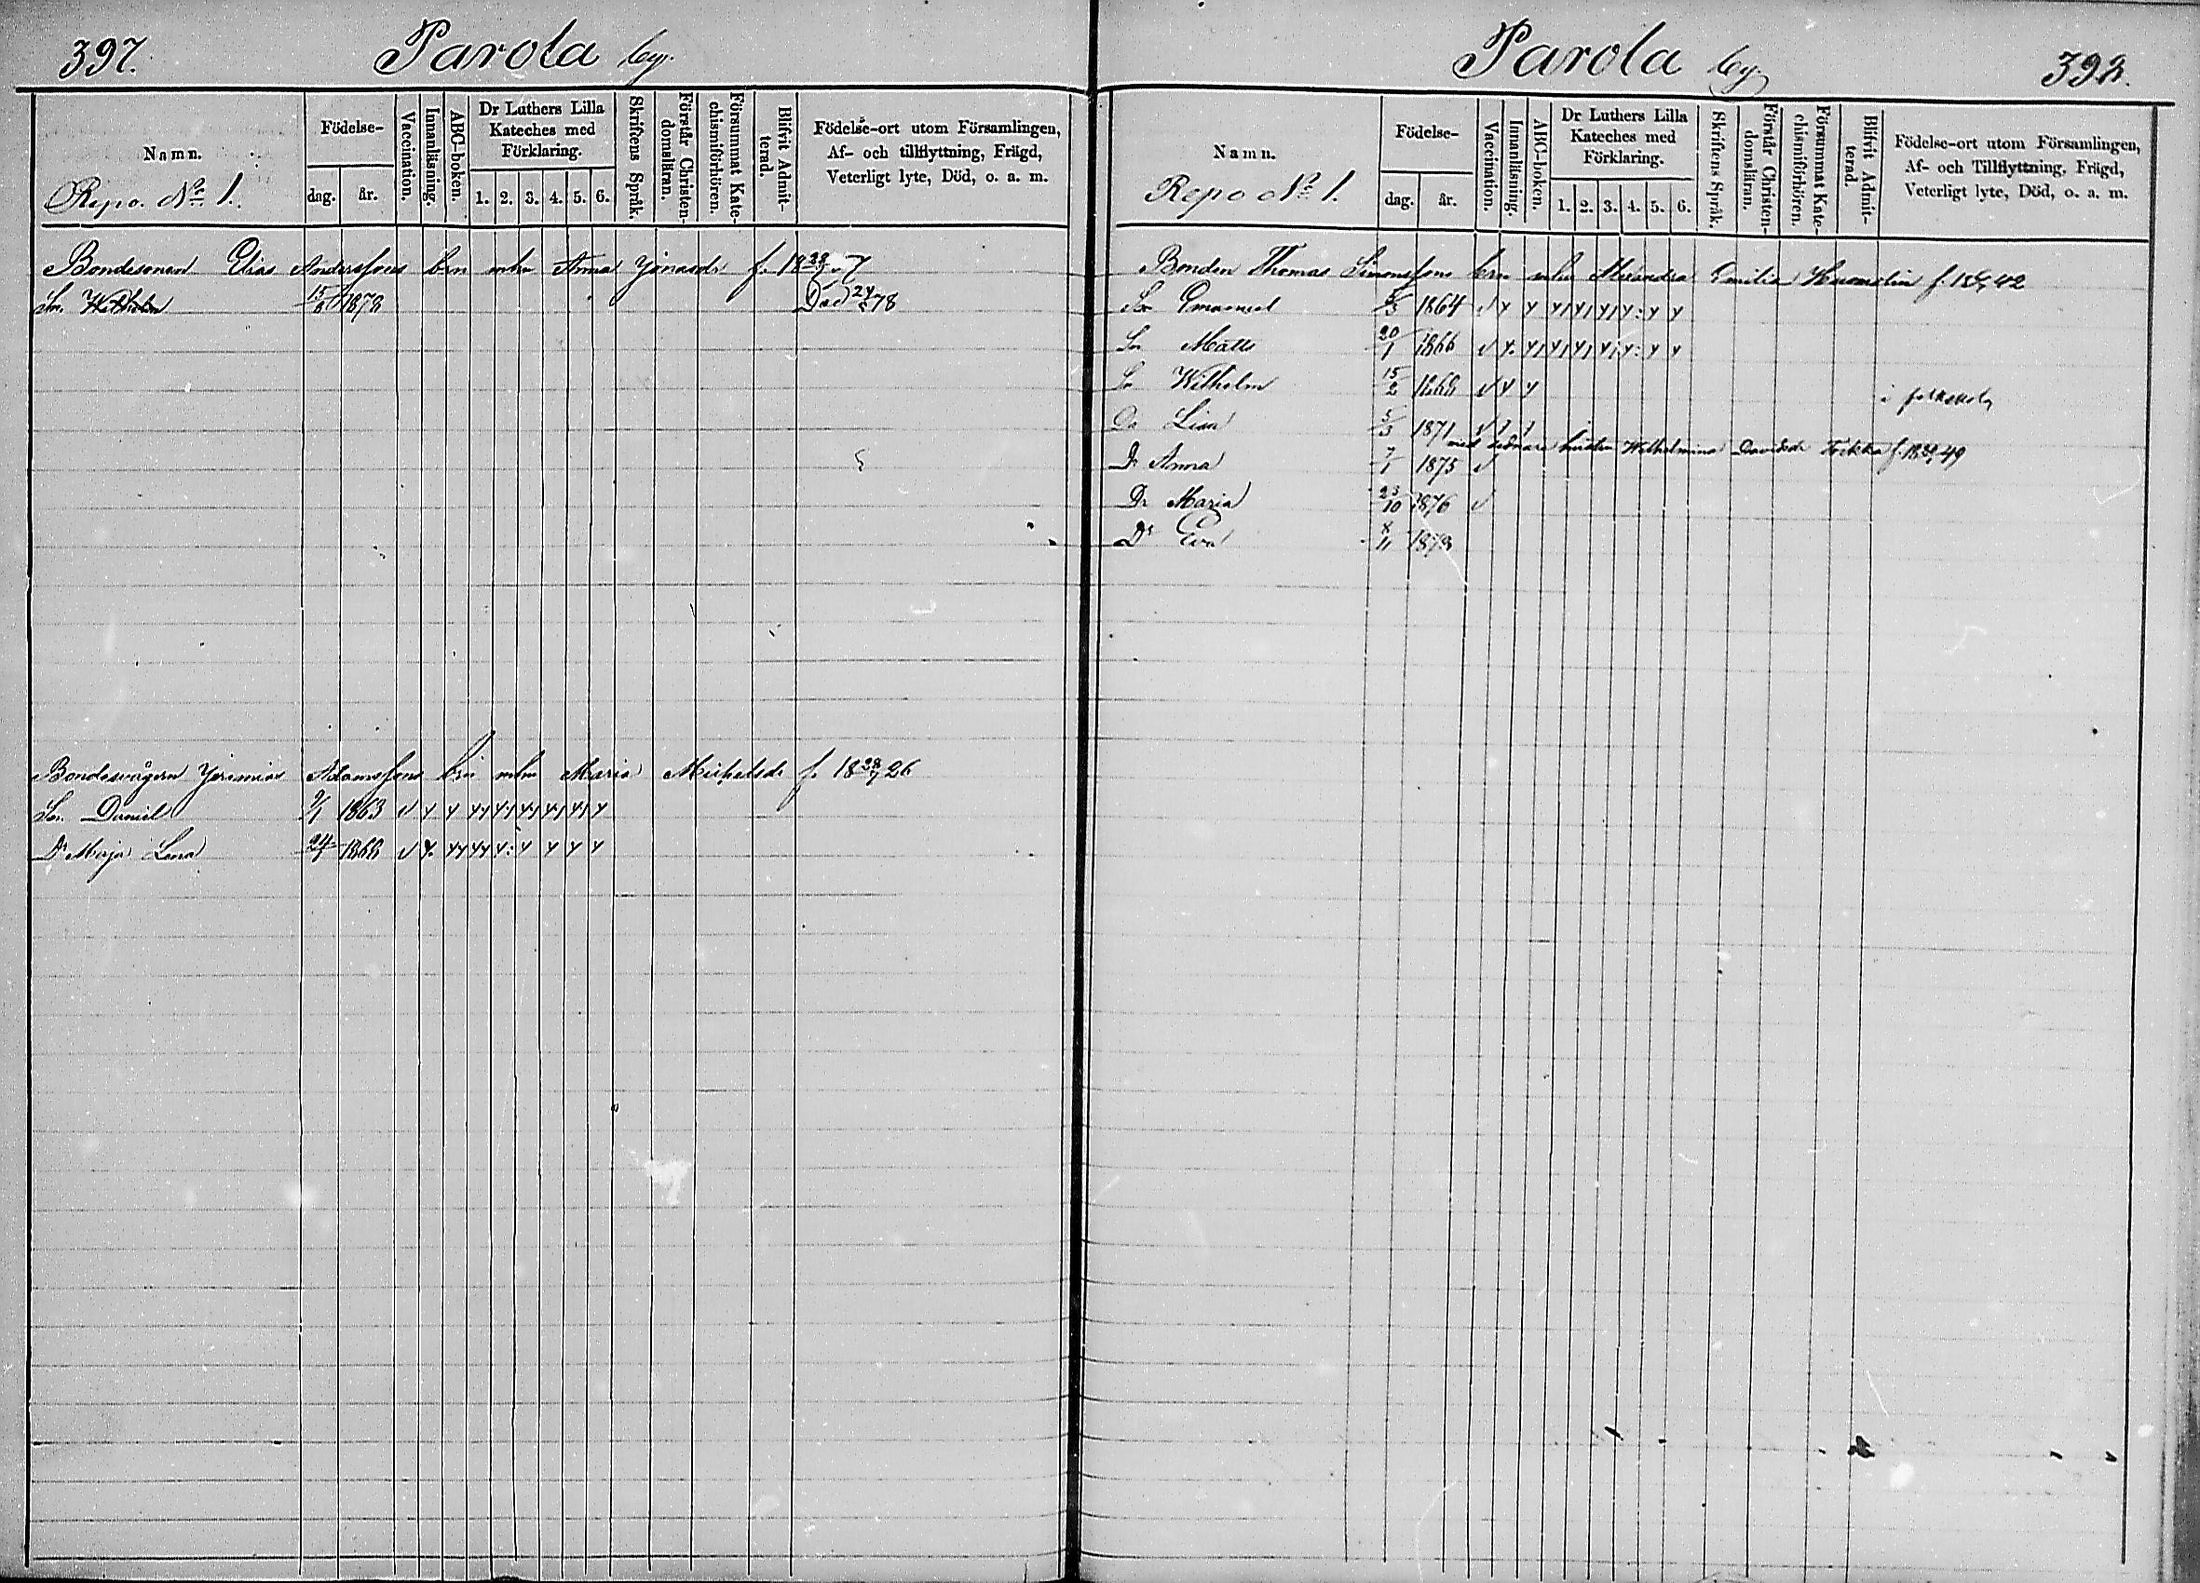 397. Parola by.
Namn.
Repo. No 1.
Födelse-
dag. år.
Vaccination.
Innanläsning.
ABC-boken.
Dr Luthers Lilla Kateches med Förklaring.
1. 2. 3. 4. 5. 6.
Skriftens Språk.
Förstår Christen-domsläran.
Försummat Kate-chismiförhören.
Blifvit Admit-terad.
Födelse-ort utom Församlingen,
Af- och tillflyttning, Frägd,
Veterligt lyte, Död, o. a. m.
Bondesonen Elias Anderssons brn mhu Anna Jonasdr f. 18
Sn. Wilhelm 15/8 1878 Död 24/ 78
Bondesvågern Jeremias Adamssons brn mhu Maria Michelsdr f. 18 28/7 26
Sn. Daniel 9/1 1863
Dr Maja Lena 24/7 1866
Parola by 392.
Namn.
Repo No 1.
Födelse-
dag. år.
Vaccination.
Innanläsning.
ABC-boken.
Dr Luthers Lilla Kateches med Förklaring.
1. 2. 3. 4. 5. 6.
Skriftens Språk.
Förstår Christen-domsläran.
Försummat Kate-chismiförhören.
Blifvit Admit-terad.
Födelse-ort utom Församlingen,
Af- och Tillflyttning, Frägd,
Veterligt lyte, Död, o. a. m.
Bonden Thomas Simonssons brn mhu Alexandra Emilia f. 18 42
Sn Emanuel 1864
Sn Matts 20/1 1866
Sn Wilhelm 15/2 1868 i folkskola
Dr Lisa 5/3 1871
med sednare hustrun Wilhelmina Davidsdr f. 18 49
Dr Anna 7/1 1875
Dr Maria 23/10 1876
Dr Eva 8/11 1878